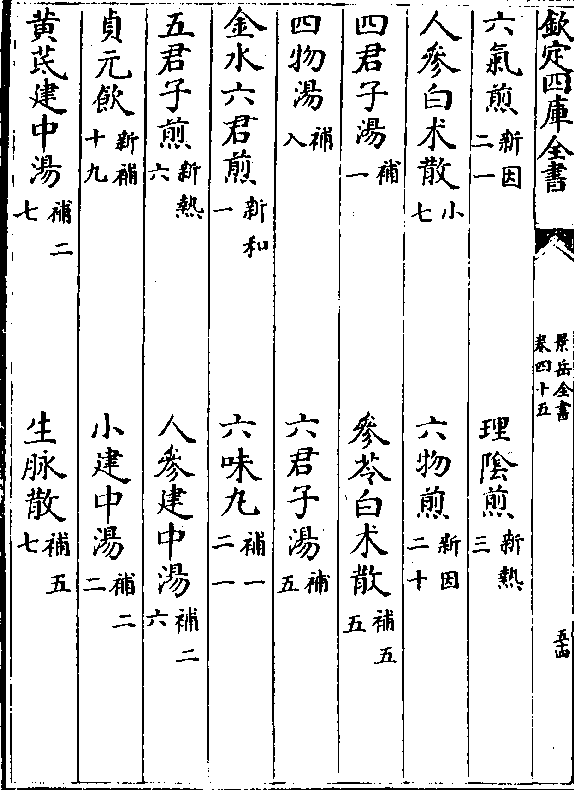 欽定四庫全書
景岳全書
卷四十五
六氣煎 新因二一
理陰煎 新熱三
人參白术散 小七
六物煎 新因二十
四君子湯 補一
參苓白术散 補五五
四物湯 補入
六君子湯 補五
金水六君煎 新和一
六味九 補一二一
五君子煎 新熱六
人參建中湯 補二六
貞元飲 新補十九
小建中湯 補二二
黃芪建中湯 補二七
生脉散 補五七